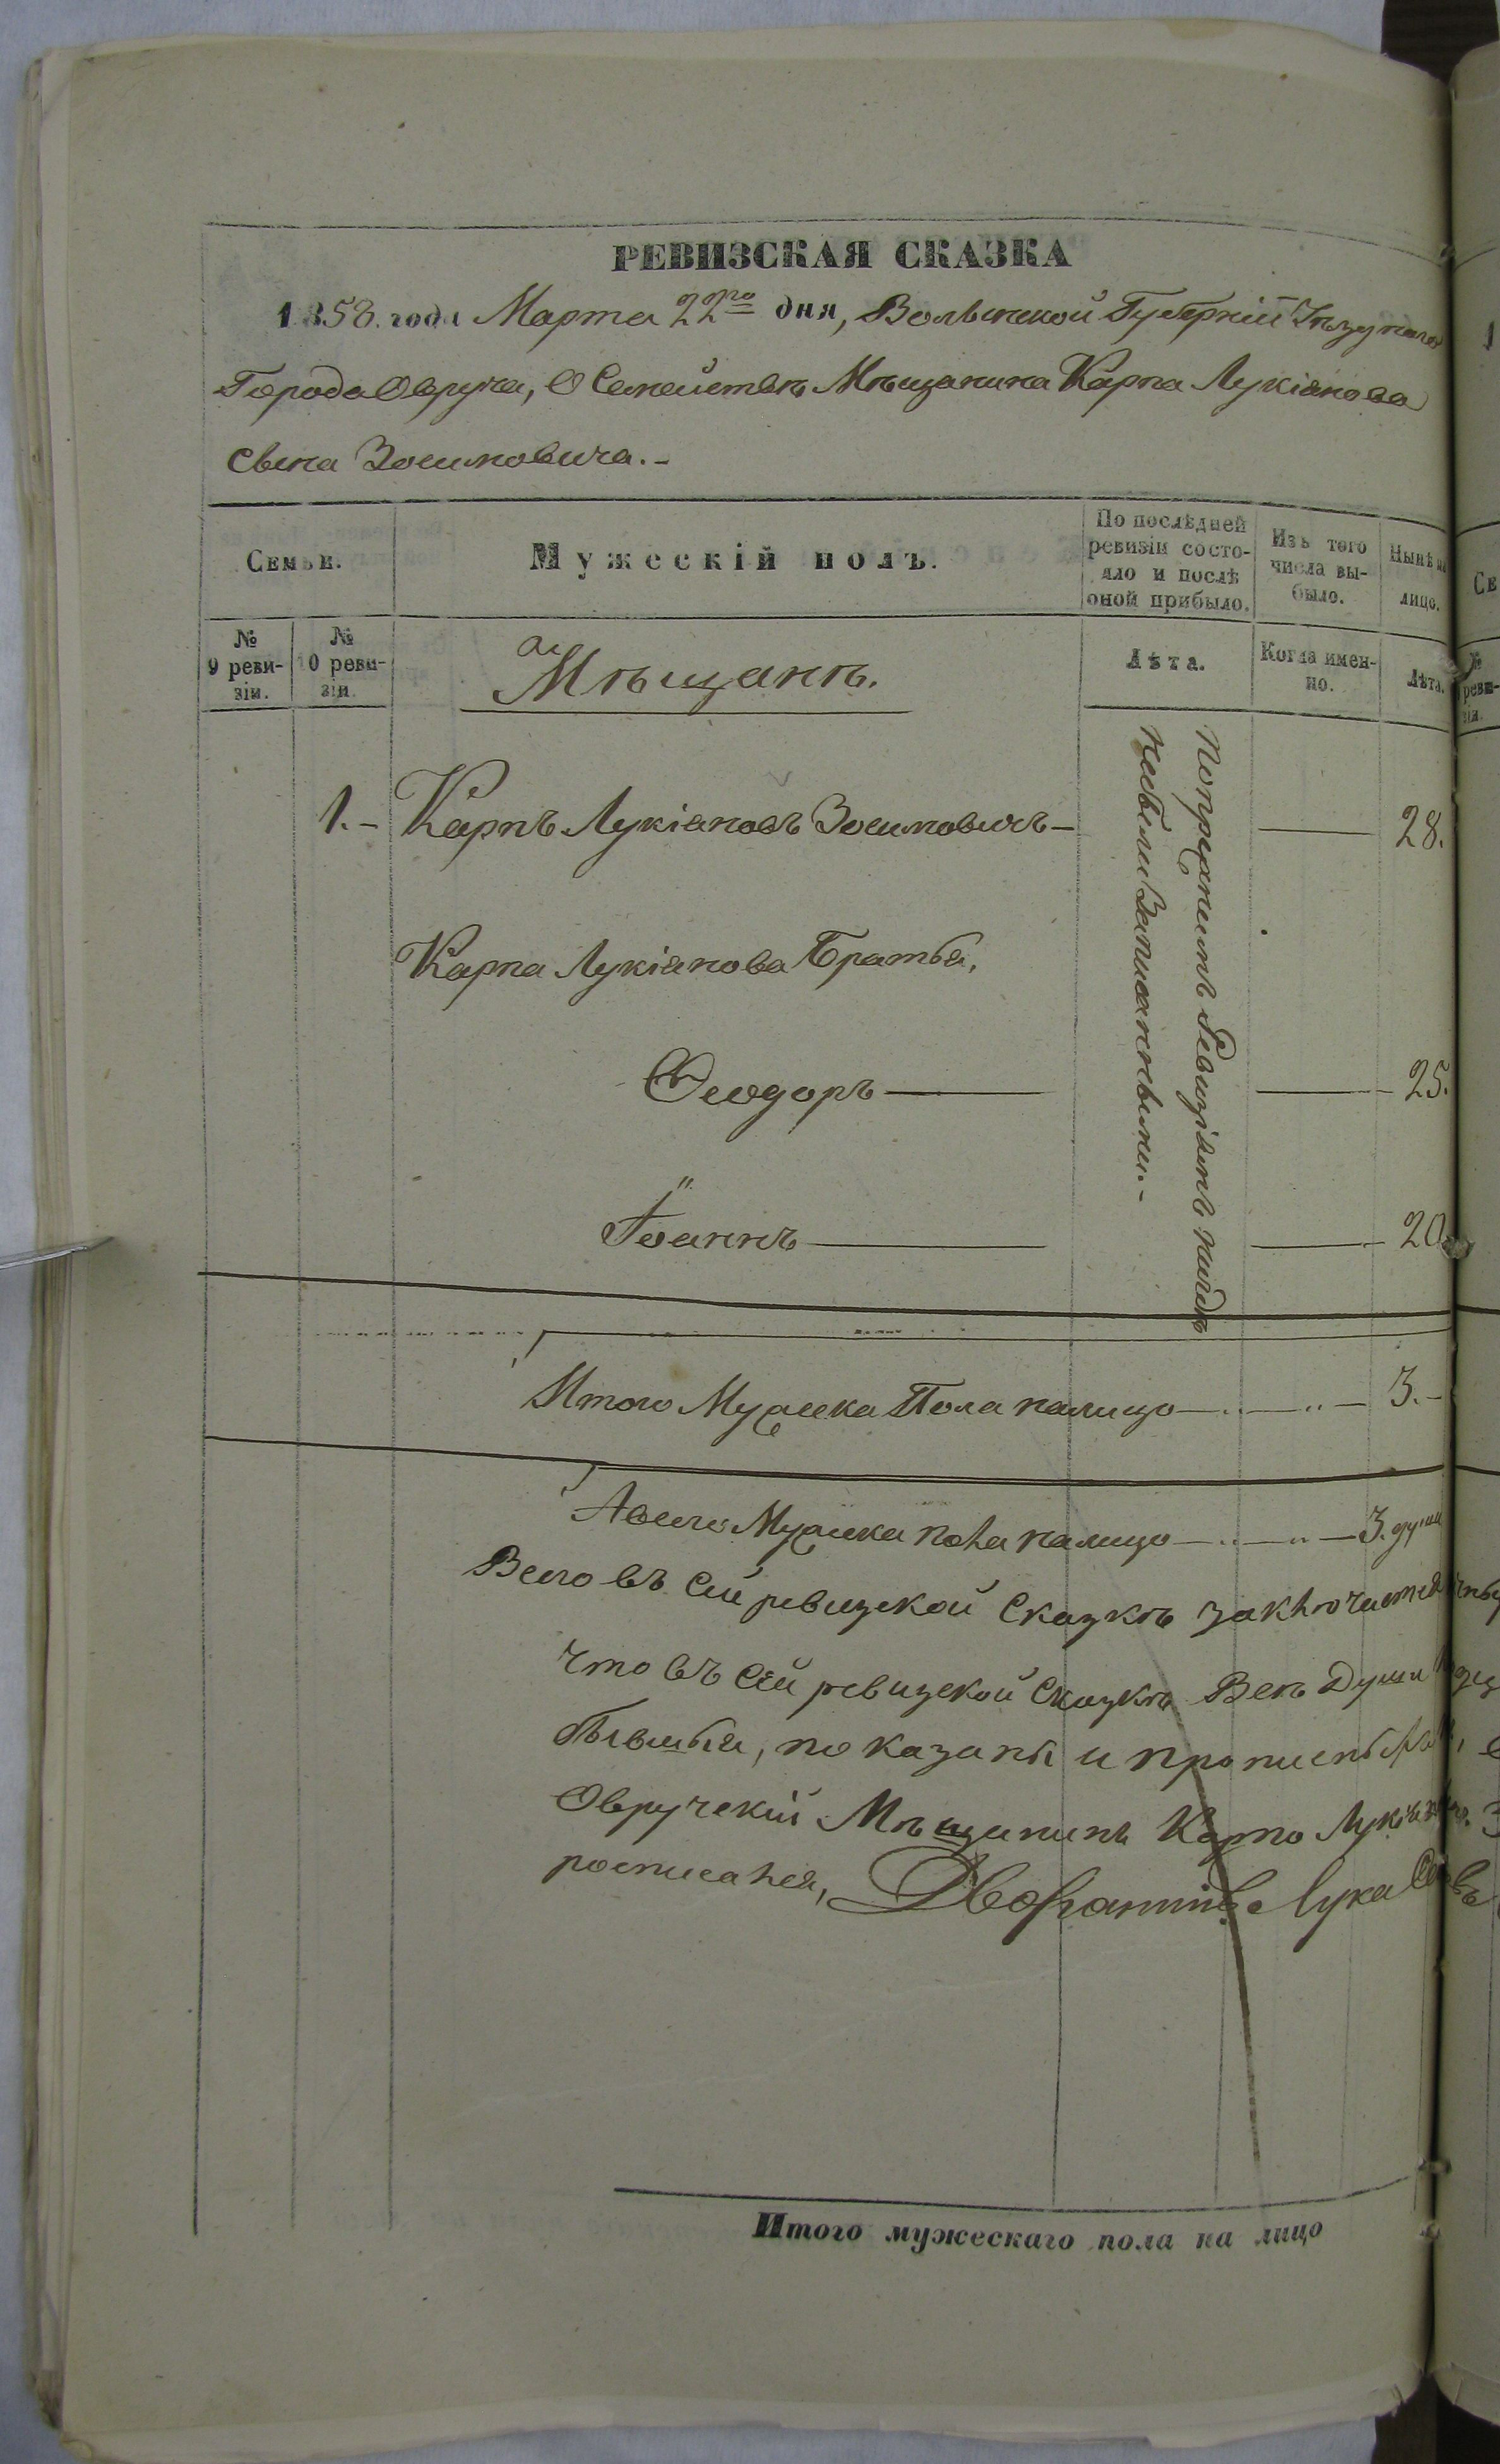 РЕВИЗСКАЯ СКАЗКА
1858. года Марта 22го дня, Волынской Губерніи Уѣзднаго
Города Овруча, О Семействѣ Мѣщанина Карпа Лукіанова
сына Зосимовича.-
Семьи.
Мужескій полъ.
По послѣдней
ревизіи состо-
яло и послѣ
оной прибыло.
Изъ того
числа вы-
было.
Нынѣ на
лицо.
№
9 реви-
зіи.
№
10 реви-
зіи.
Мѣщанѣ.
Лѣта.
Когда имен-
но.
Лѣта.
1.- Карпъ Лукіановъ Зосимовичъ — — 28.
Карпа Лукіанова Братья,
Феодоръ — — 25.
Іоаннъ — — 20
По прежнимъ Ревизіямъ нигдѣ
небыли Записанными.-
Итого Мужеска Пола налицо — 3.-
А всего Мужеска пола налицо — 3. души
Всего въ сей ревизской Сказкѣ заключается
что въ сей ревизской Сказкѣ Всѣ Души
бывшыя, показаны и
Овручскій Мѣщанинъ Карпо
росписался, Дворянинъ Лука
Итого мужескаго пола на лицо